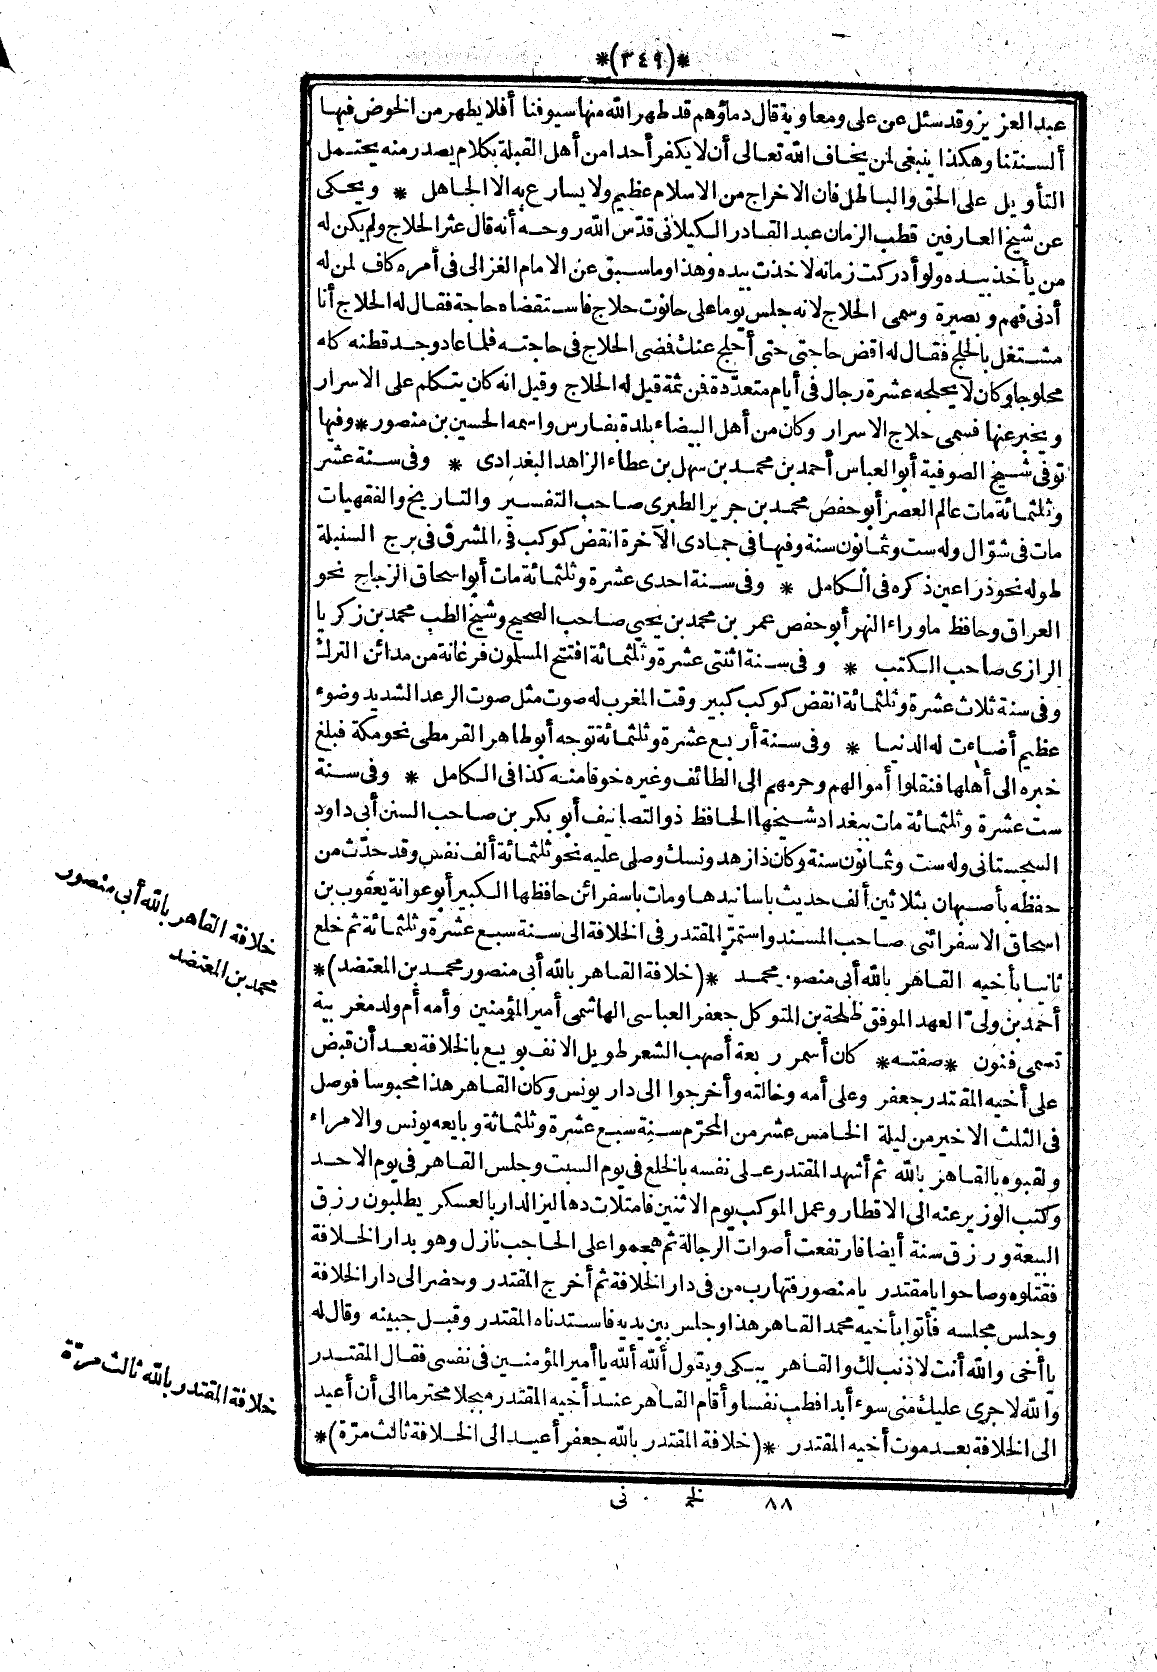 *(٣٤٩)*
عبد العزيز وقد سئل عن على ومعاوية قال دماؤهم قد طهر الله منها سيوفنا أفلا يطهر من الخوض فيها
ألسنتنا وهكذا ينبغى لمن يخاف الله تعالى أن لا يكفر أحدا من أهل القبلة بكلام يصدر منه يحتمل
التأويل على الحق والباطل فان الاخراج من الاسلام عظيم ولا يسارع به الا الجاهل * ويحكى
عن شيخ العارفين قطب الزمان عبد القادر الكيلانى قدّس الله روحه أنه قال عثر الحلاج ولم يكن له
من يأخذ بيده ولو أدركت زمانه لاخذت بيده وهذا وما سبق عن الامام الغزالى فى أمره كاف لمن له
أدنى فهم وبصيرة وسمى الحلاج لانه جلس يوما على حانوت حلاج فاستقضاه حاجة فقال له الحلاج أنا
مشتغل بالحلج فقال له اقض حاجتى حتى أحلج عنك فمضى الحلاج فى حاجته فلما عاد وجد قطنه كله
محلوجا وكان لا يحلجه عشرة رجال فى أيام متعدّدة فمن ثمة قيل له الحلاج وقيل انه كان يتكلم على الاسرار
ويخبر عنها فسمى حلاج الاسرار وكان من أهل البيضاء بلدة بفارس واسمه الحسين بن منصور * وفيها
توفى شيخ الصوفية أبو العباس أحمد بن محمد بن سهل بن عطاء الزاهد البغدادى * وفى سنة عشر
وثلثمائة مات عالم العصر أبو حفص محمد بن جرير الطبرى صاحب التفسير والتاريخ والفقهيات
مات فى شوّال وله ست وثمانون سنة وفيها فى جمادى الآخرة انقض كوكب فى المشرق فى برج السنبلة
طوله نحو ذراعين ذكره فى الكامل * وفى سنة احدى عشرة وثلثمائة مات أبو اسحاق الزجاج نحو
العراق وحافظ ماوراء النهر أبو حفص عمر بن محمد بن يحيى صاحب الصحيح وشيخ الطب محمد بن زكريا
الرازى صاحب الكتب * وفى سنة اثنتى عشرة وثلثمائة افتتح المسلمون فرغانة من مدائن الترك
وفى سنة ثلاث عشرة وثلثمائة انقض كوكب كبير وقت المغرب له صوت مثل صوت الرعد الشديد وضوء
عظيم أضاءت له الدنيا * وفى سنة أربع عشرة وثلثمائة توجه أبو طاهر القرمطى نحو مكة فبلغ
خبره الى أهلها فنقلوا أموالهم وحرمهم الى الطائف وغيره خوفا منه كذا فى الكامل * وفى سنة
ست عشرة وثلثمائة مات ببغداد شيخها الحافظ ذو التصانيف أبو بكر بن صاحب السنن أبى داود
السجستانى وله ست وثمانون سنة وكان ذا زهد ونسك وصلى عليه نحو ثلثمائة ألف نفس وقد حدّث من
حفظه بأصبهان بثلاثين ألف حديث باسانيدها ومات باسفرائن حافظها الكبير أبو عوانة يعقوب بن
اسحاق الاسفرائنى صاحب المسند واستمرّ المقتدر فى الخلافة الى سنة سبع عشرة وثلثمائة ثم خلع
ثانيا بأخيه القاهر بالله أبى منصور محمد *(خلافة القاهر بالله أبى منصور محمد بن المعتضد)*
أحمد بن ولىّ العهد الموفق طلحة بن المتوكل جعفر العباسى الهاشمى أمير المؤمنين وأمه أم ولد مغربية
تسمى فنون * صفته * كان أسمر ربعة أصهب الشعر طويل الانف بويع بالخلافة بعد أن قبض
على أخيه المقتدر جعفر وعلى أمه وخالته وأخرجوا الى دار يونس وكان القاهر هذا محبوسا فوصل
فى الثلث الاخير من ليلة الخامس عشر من المحرّم سنة سبع عشرة وثلثمائة وبايعه يونس والامراء
ولقبوه بالقاهر بالله ثم أشهد المقتدر على نفسه بالخلع فى يوم السبت وجلس القاهر فى يوم الاحد
وكتب الوزير عنه الى الاقطار وعمل الموكب يوم الاثنين فامتلات دهاليز الدار بالعسكر يطلبون رزق
البيعة ورزق سنة أيضا فارتفعت أصوات الرجالة ثم هجموا على الحاجب نازل وهو بدار الخلافة
فقتلوه وصاحوا يا مقتدر يا منصور فتهارب من فى دار الخلافة ثم أخرج المقتدر وحضر الى دار الخلافة
وجلس مجلسه فأتوا بأخيه محمد القاهر هذا وجلس بين يديه فاستدناه المقتدر وقبل جبينه وقال له
يا أخى والله أنت لا ذنب لك والقاهر يبكى ويقول ألله ألله يا أمير المؤمنين فى نفسى فقال المقتدر
والله لا جرى عليك منى سوء أبدا فطب نفسا وأقام القاهر عند أخيه المقتدر مبجلا محترما الى أن أعيد
الى الخلافة بعد موت أخيه المقتدر *(خلافة المقتدر بالله جعفر أعيد الى الخلافة ثالث مرّة)*
خلافة القاهر بالله أبى منصور
محمد بن المعتضد
خلافة المقتدر بالله ثالث مرّة
٨٨ خج نى